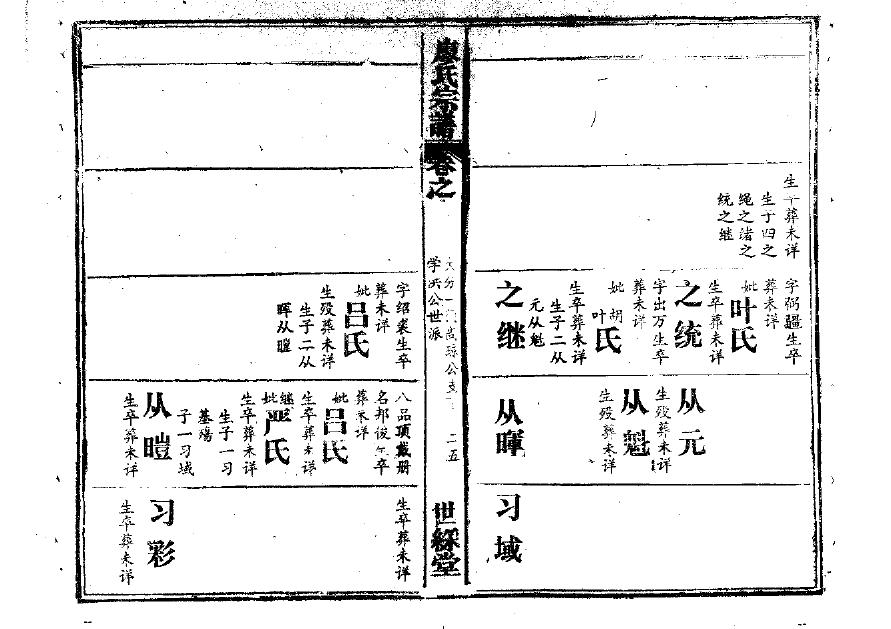 生卒葬未详
生子四之
绳之诸之
统之继
字弼疆生卒
葬未详
妣叶氏
生卒葬未详
之统
字出万生卒
葬未详
妣胡叶氏
生卒葬未详
生子二从
元从魁
之继
从元
生殁葬未详
从魁
生殁葬未详
从暉
习域
廖氏宗譜
卷之
公支
学洪公世派
二五
世綵堂
字绍裘生卒
葬未详
妣吕氏
生殁葬未详
生子二从
晖从暟
八品顶戴册
名邦俊生卒
葬未详
妣吕氏
生卒葬未详
继妣严氏
生卒葬未详
生子一习
墓殇
子一习域
从暟
生卒葬未详
生卒葬未详
习彩
生卒葬未详